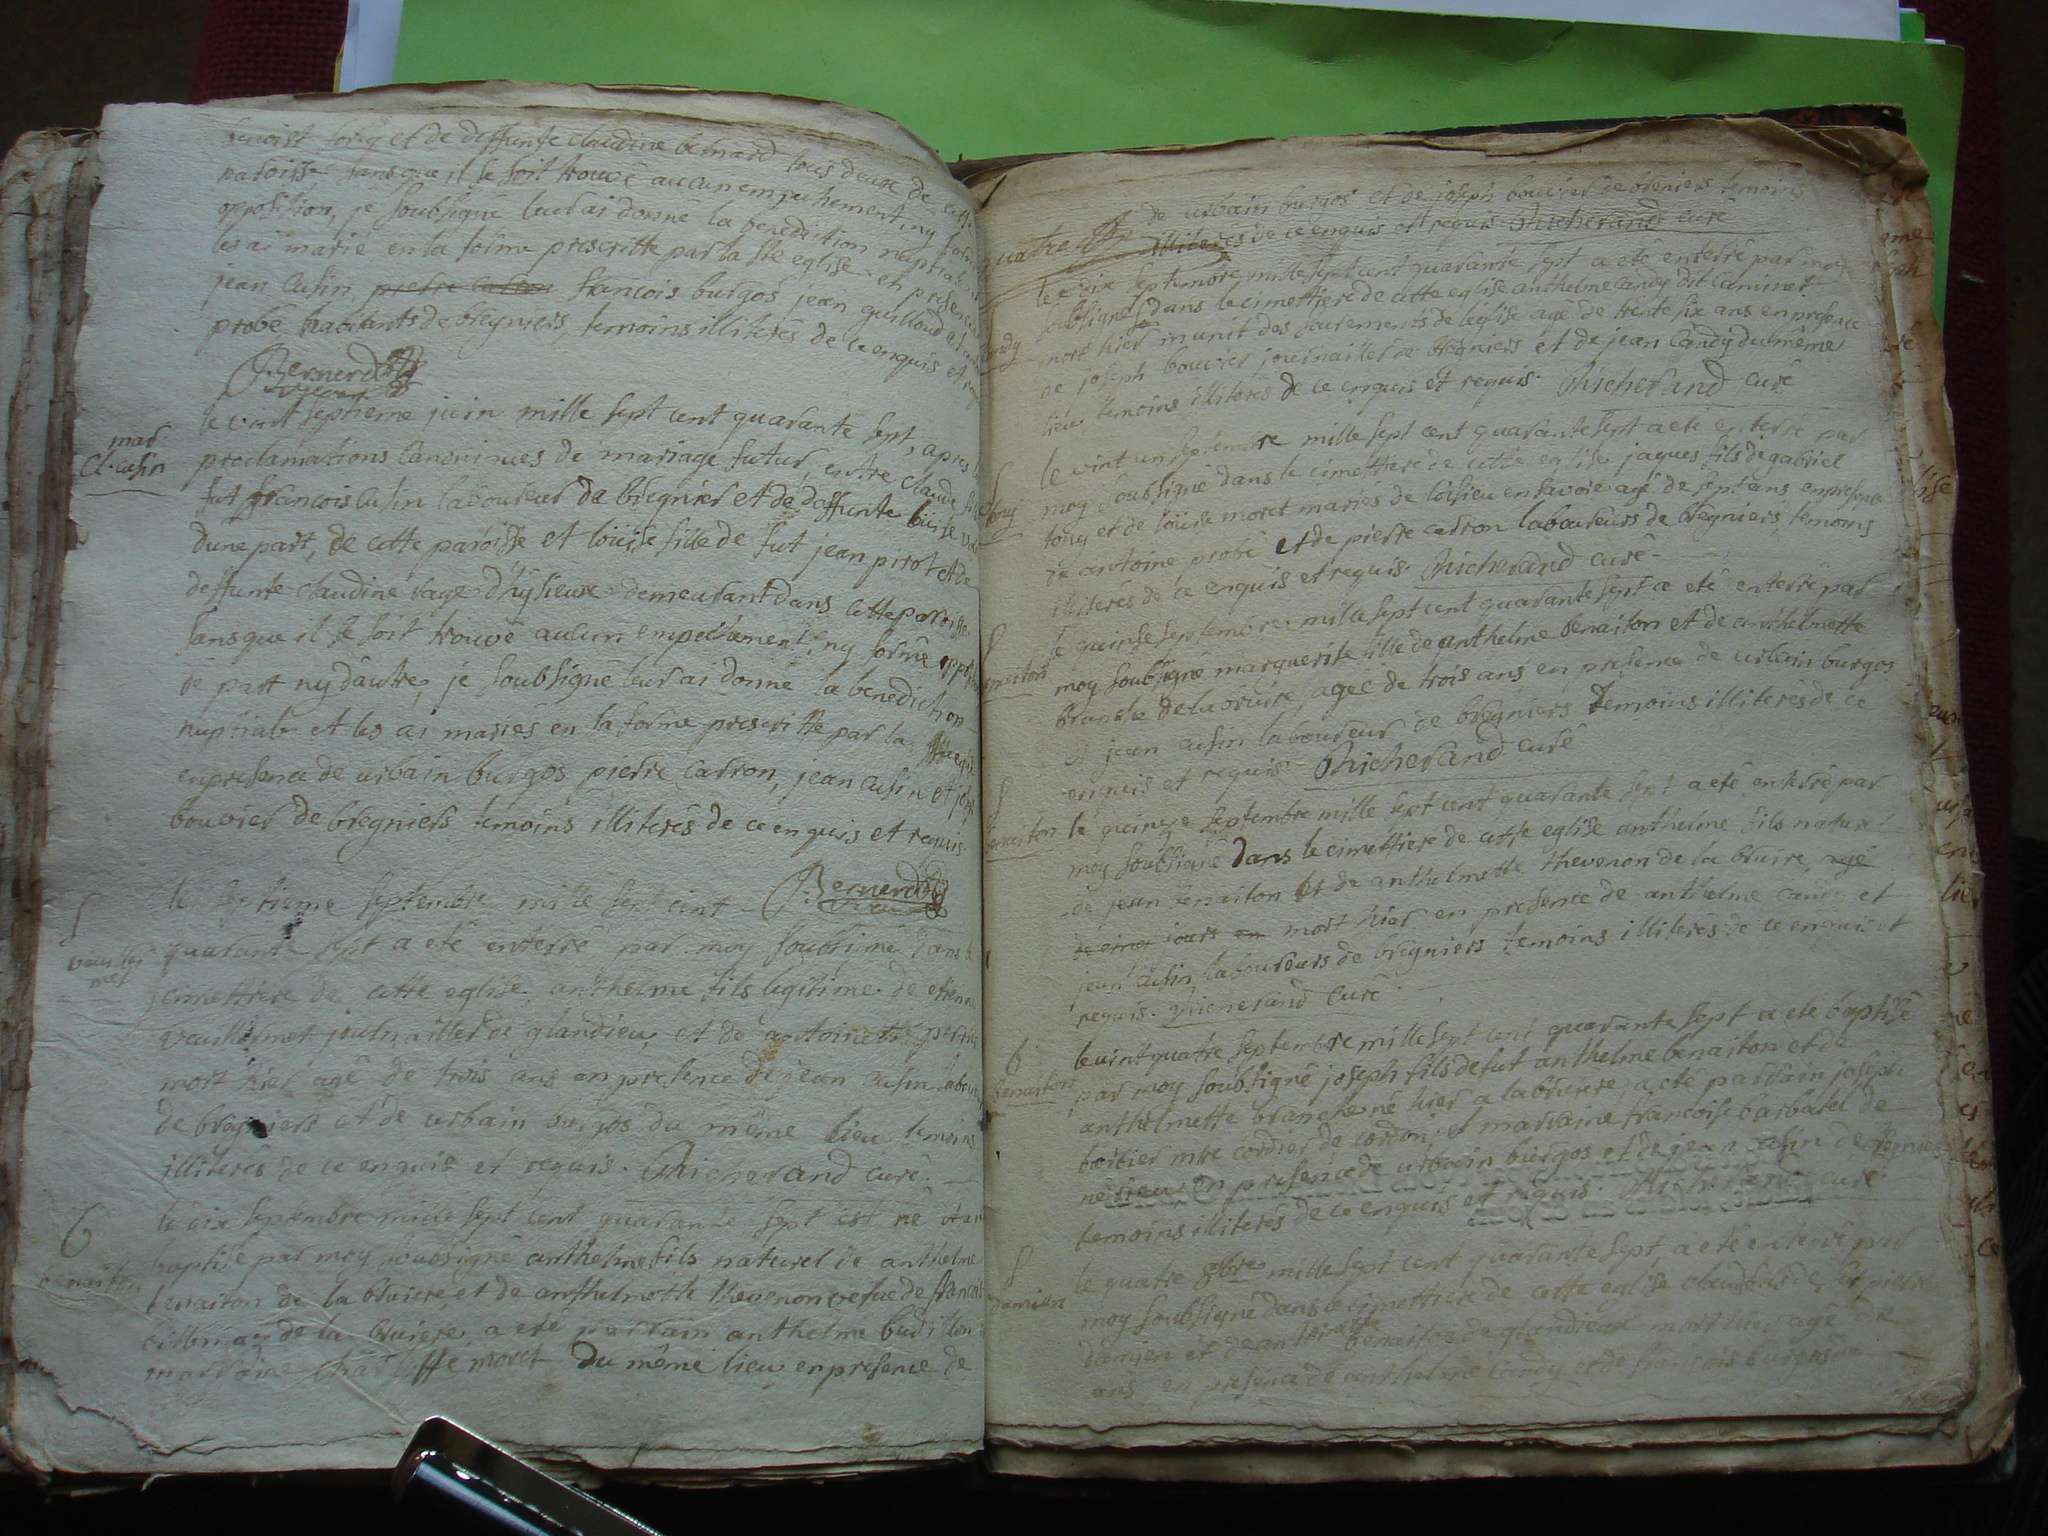 benoist tony et de deffunte claudine bernard tous deux de cette
paroisse sans que il se soit trouvé aucun empechement ny
opposition, je soubsigné leur ai donné la benediction nuptiale
les ai marié en la forme prescritte par la ste eglise en presence
jean cusin, pierre carron francois burgos jean guilloud et
probé habitants de bregniers, temoins illiterés de ce enquis et
Bernerd
vicaire
mar
Cl. cusin
le vint septieme juin mille sept cent quarante sept, apres
proclamations canoniques de mariage futur entre claude fils
fut francois cusin laboureur de bregnier et de deffunte louise
dune part, de cette paroisse et louise fille de fut jean pirot et de
deffunte claudine rage d'hysieux demeurant dans cette paroisse
sans que il se soit trouvé aucun empechement, ny formé
de part ny dautre, je soubsigné leur ai donné la benediction
nuptiale et les ai mariés en la forme prescritte par la ste eglise
en presence de urbain burgos pierre carron, jean cusin et
bouvier de bregniers temoins illiterés de ce enquis et requis
Bernerd
vicaire
S
le septembre mille sept cent
quarante sept a eté enterré par moy soubsigné dans
cimettiere de cette eglise anthelme fils legitime de etienne
veuillermet journallier de glandieu, et de antoinette
mort hier agé de trois ans en presence de jean cusin
de bregniers et de urbain burgos du même lieu temoins
illiterés de ce enquis et requis. Richerand curé
6
benaiton
le dix septembre mille sept cent quarante sept est né
baptisé par moy soubsigné anthelme fils naturel de anthelme
benaiton de la bruiere, et de anthelmette thevenon vefue de
de la bruiere a eté parrain anthelme
marraine moret du même lieu, en presence de
de urbain burgos et de joseph bouvier de bregniers temoins
illiterés de ce enquis et requis Richerand curé
candy
le dix septembre mille sept cent quarante sept a eté enterré par moy
soubsigné dans le cimettiere de cette eglise anthelme candy dit caminet
mort hier munit des sacrements de leglise agé de trente six ans en presence
de joseph bouvier journallier de bregniers et de jean candy du même
lieu temoins illiterés de ce enquis et requis. Richerand curé
S
tony
le vint un septembre mille sept cent quarante sept a eté enterré par
moy soubsigné dans le cimettiere de cette eglise jaques fils de gabriel
tony et de louise moret mariés de loisieu en savoie agé de sept ans en presence
de antoine probé et de pierre carron laboureurs de bregniers temoins
illiterés de ce enquis et requis. Richerand curé
S
benaiton
le quinse septembre mille sept cent quarante sept a eté enterré par
moy soubsigné marguerite fille de anthelme benaiton et de anthelmette
branche de la bruire, agée de trois ans en presence de urbain burgos
et jean cusin laboureur de bregniers temoins illiterés de ce
enquis et requis Richerand curé
S
benaiton
le quinze septembre mille sept cent quarante sept a eté enterré par
moy soubsigné dans le cimettiere de cette eglise anthelme fils naturel
de jean benaiton et de anthelmette thevenon de la bruire, agé
de cinq jours mort hier en presence de anthelme candy et
jean cusin laboureurs de bregniers temoins illiterés de ce enquis et
requis. Richerand curé
6
benaiton
le vint quatre septembre mille sept cent quarante sept a eté baptisé
par moy soubsigné joseph fils de fut anthelme benaiton et de
anthelmette branche né hier a la bruire, a eté parrain joseph
mtre cordier de cordon, et marraine francoise barbarel de
en presence de urbain burgos et de jean cusin de bregniers
temoins illiterés de ce enquis et requis Richerand curé
S
damien
le quatre 8bre mille sept cent quarante sept a eté enterré par
moy soubsigné dans le cimettiere de cette eglise claude fils de pierre
damien et de antoinette benaiton de glandieu mort hier, agé de
ans en presence de anthelme candy et de francois burgos de